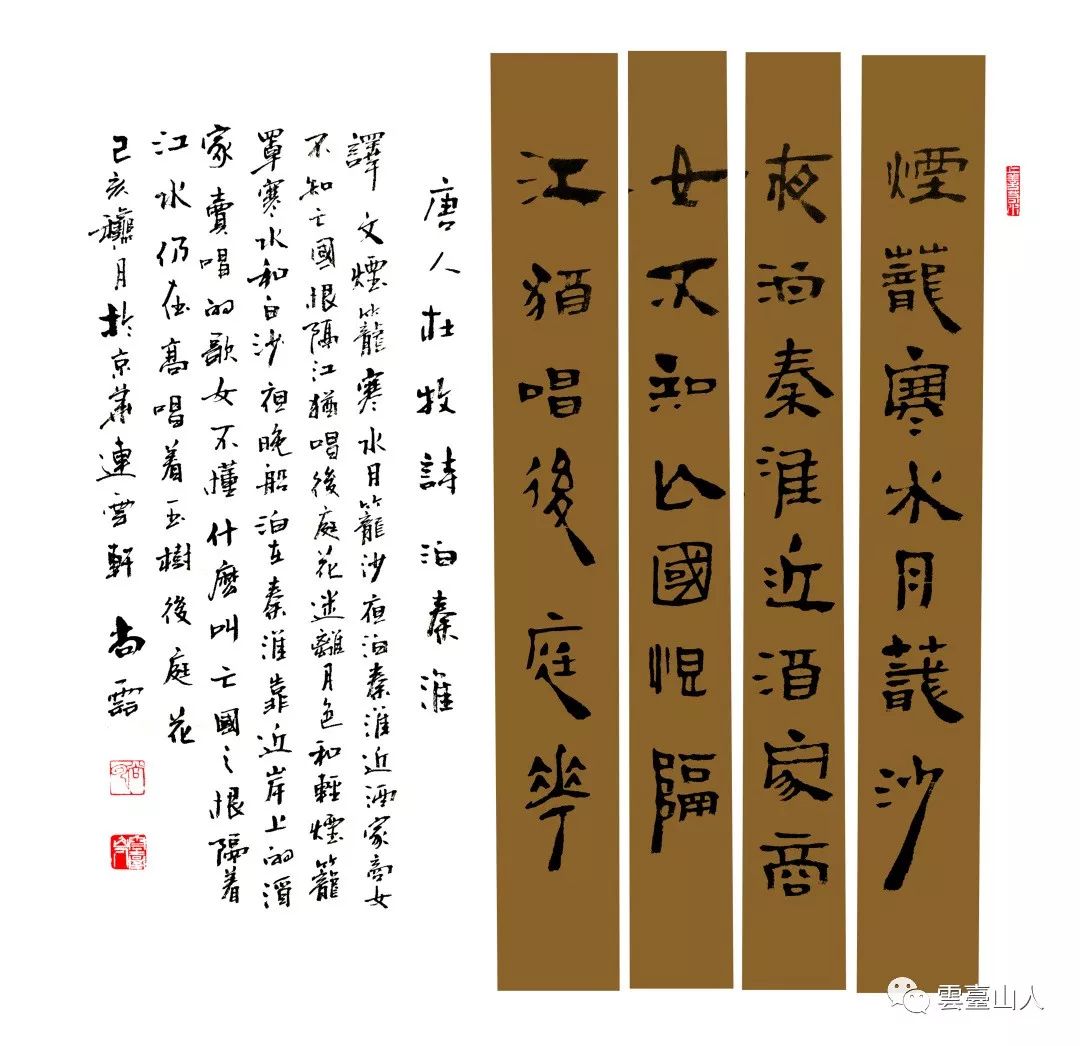 煙蘢寒水月蘢沙
夜泊秦淮近酒家商
女不知亡國恨隔
江猶唱後庭花
唐人杜牧詩泊秦淮
譯文煙籠寒水月籠沙夜泊秦淮近酒家商女
不知亡國恨隔江猶唱後庭花迷離月色和輕煙籠
罩寒水和白沙夜晚船泊在秦淮靠近岸上的酒
家賣唱的歌女不懂什麼叫亡國之恨隔着
江水仍在高唱着玉樹後庭花
己亥月於京華連雲軒尚雲
雲臺山人